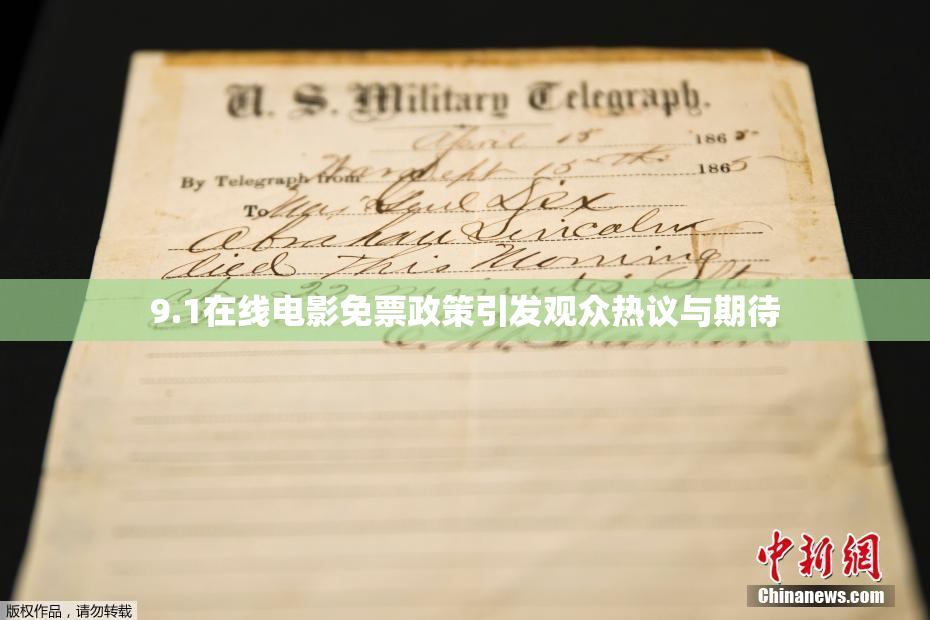 U. S. Military Telegraph.
April 15 1865
By Telegraph from War Dept 15th 1865
To Maj Genl Dix
Abraham Lincoln
died This Morning
at 22 minutes after
9.1在线电影免票政策引发观众热议与期待
E. M. Stanton
中新网
Chinanews.com
版权作品，请勿转载